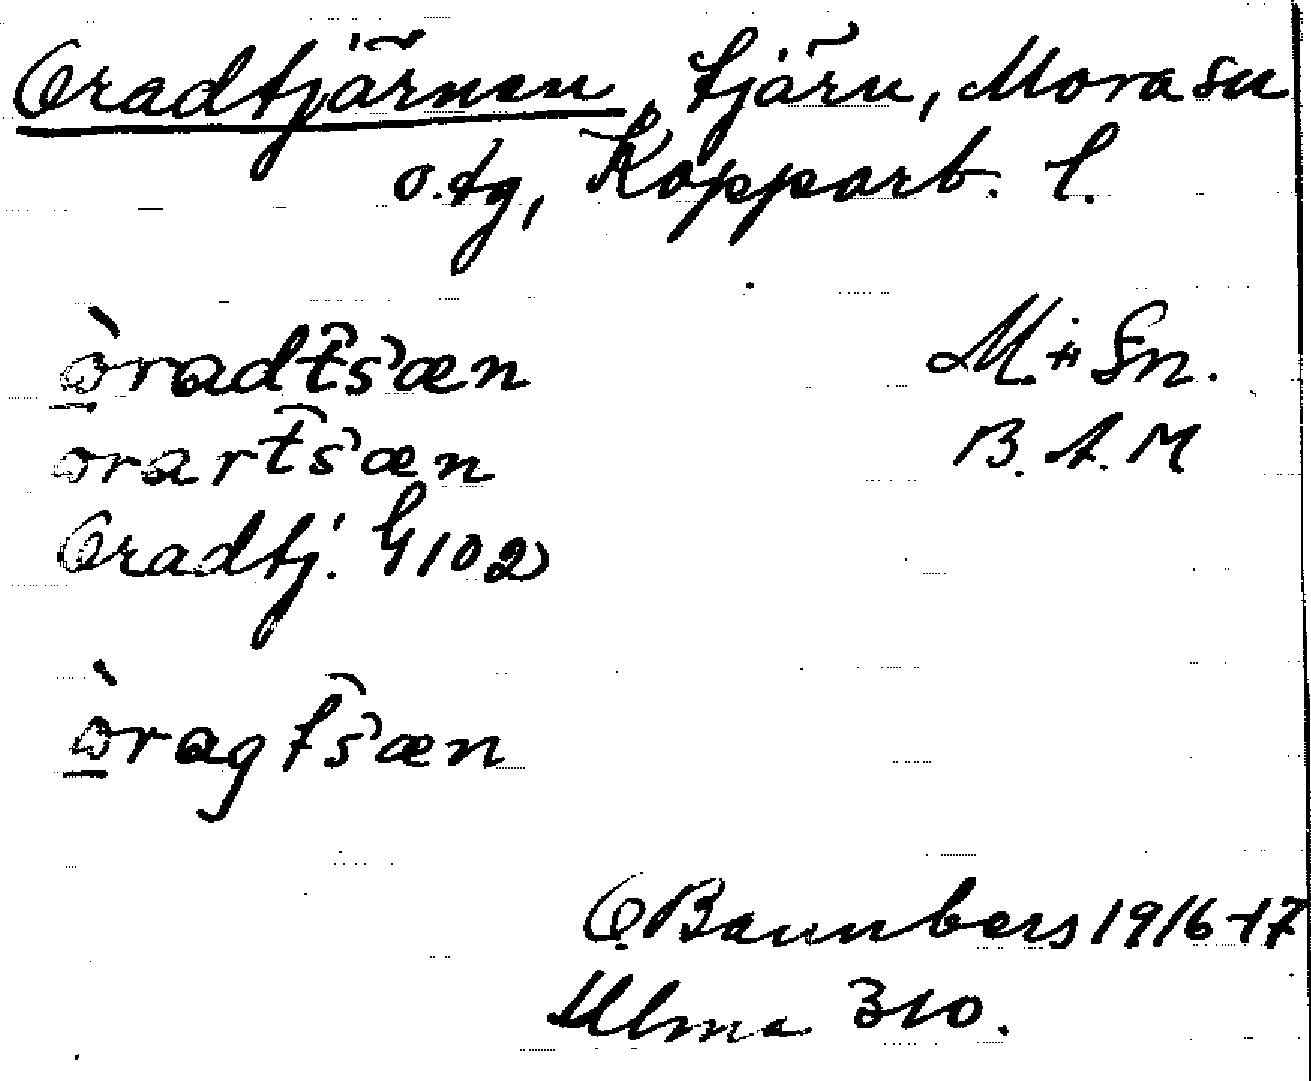 Oradtjärnen, tjärn, Mora sn
o. tg, Kopparb. l.
òradt͡s̓æn M. + Sn.
orart͡s̓æn B. A. M
Oradtj. G 102
òragt͡s̓æn
O. Bannbers 1916-17
Ulma 310.